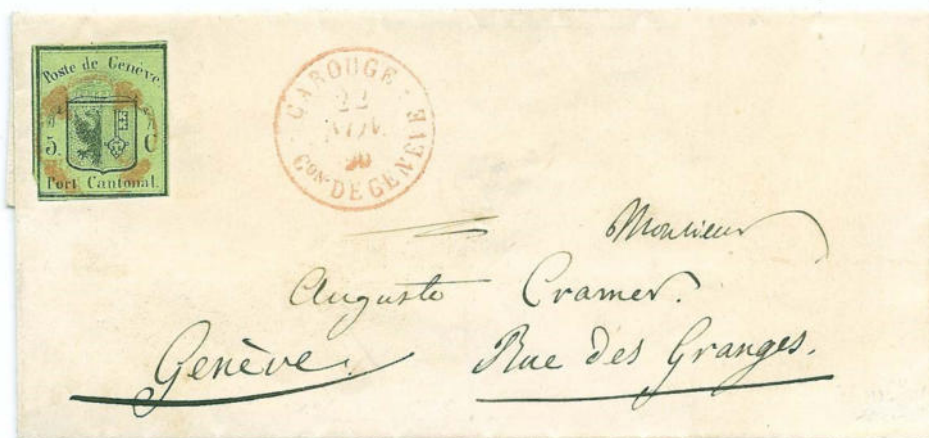 Poste de Genève
5. C
Port Cantonal.
CAROUGE
22
NOV.
50
Con. DE GENEVE
Monsieur
Auguste Cramer.
Genève. Rue des Granges.